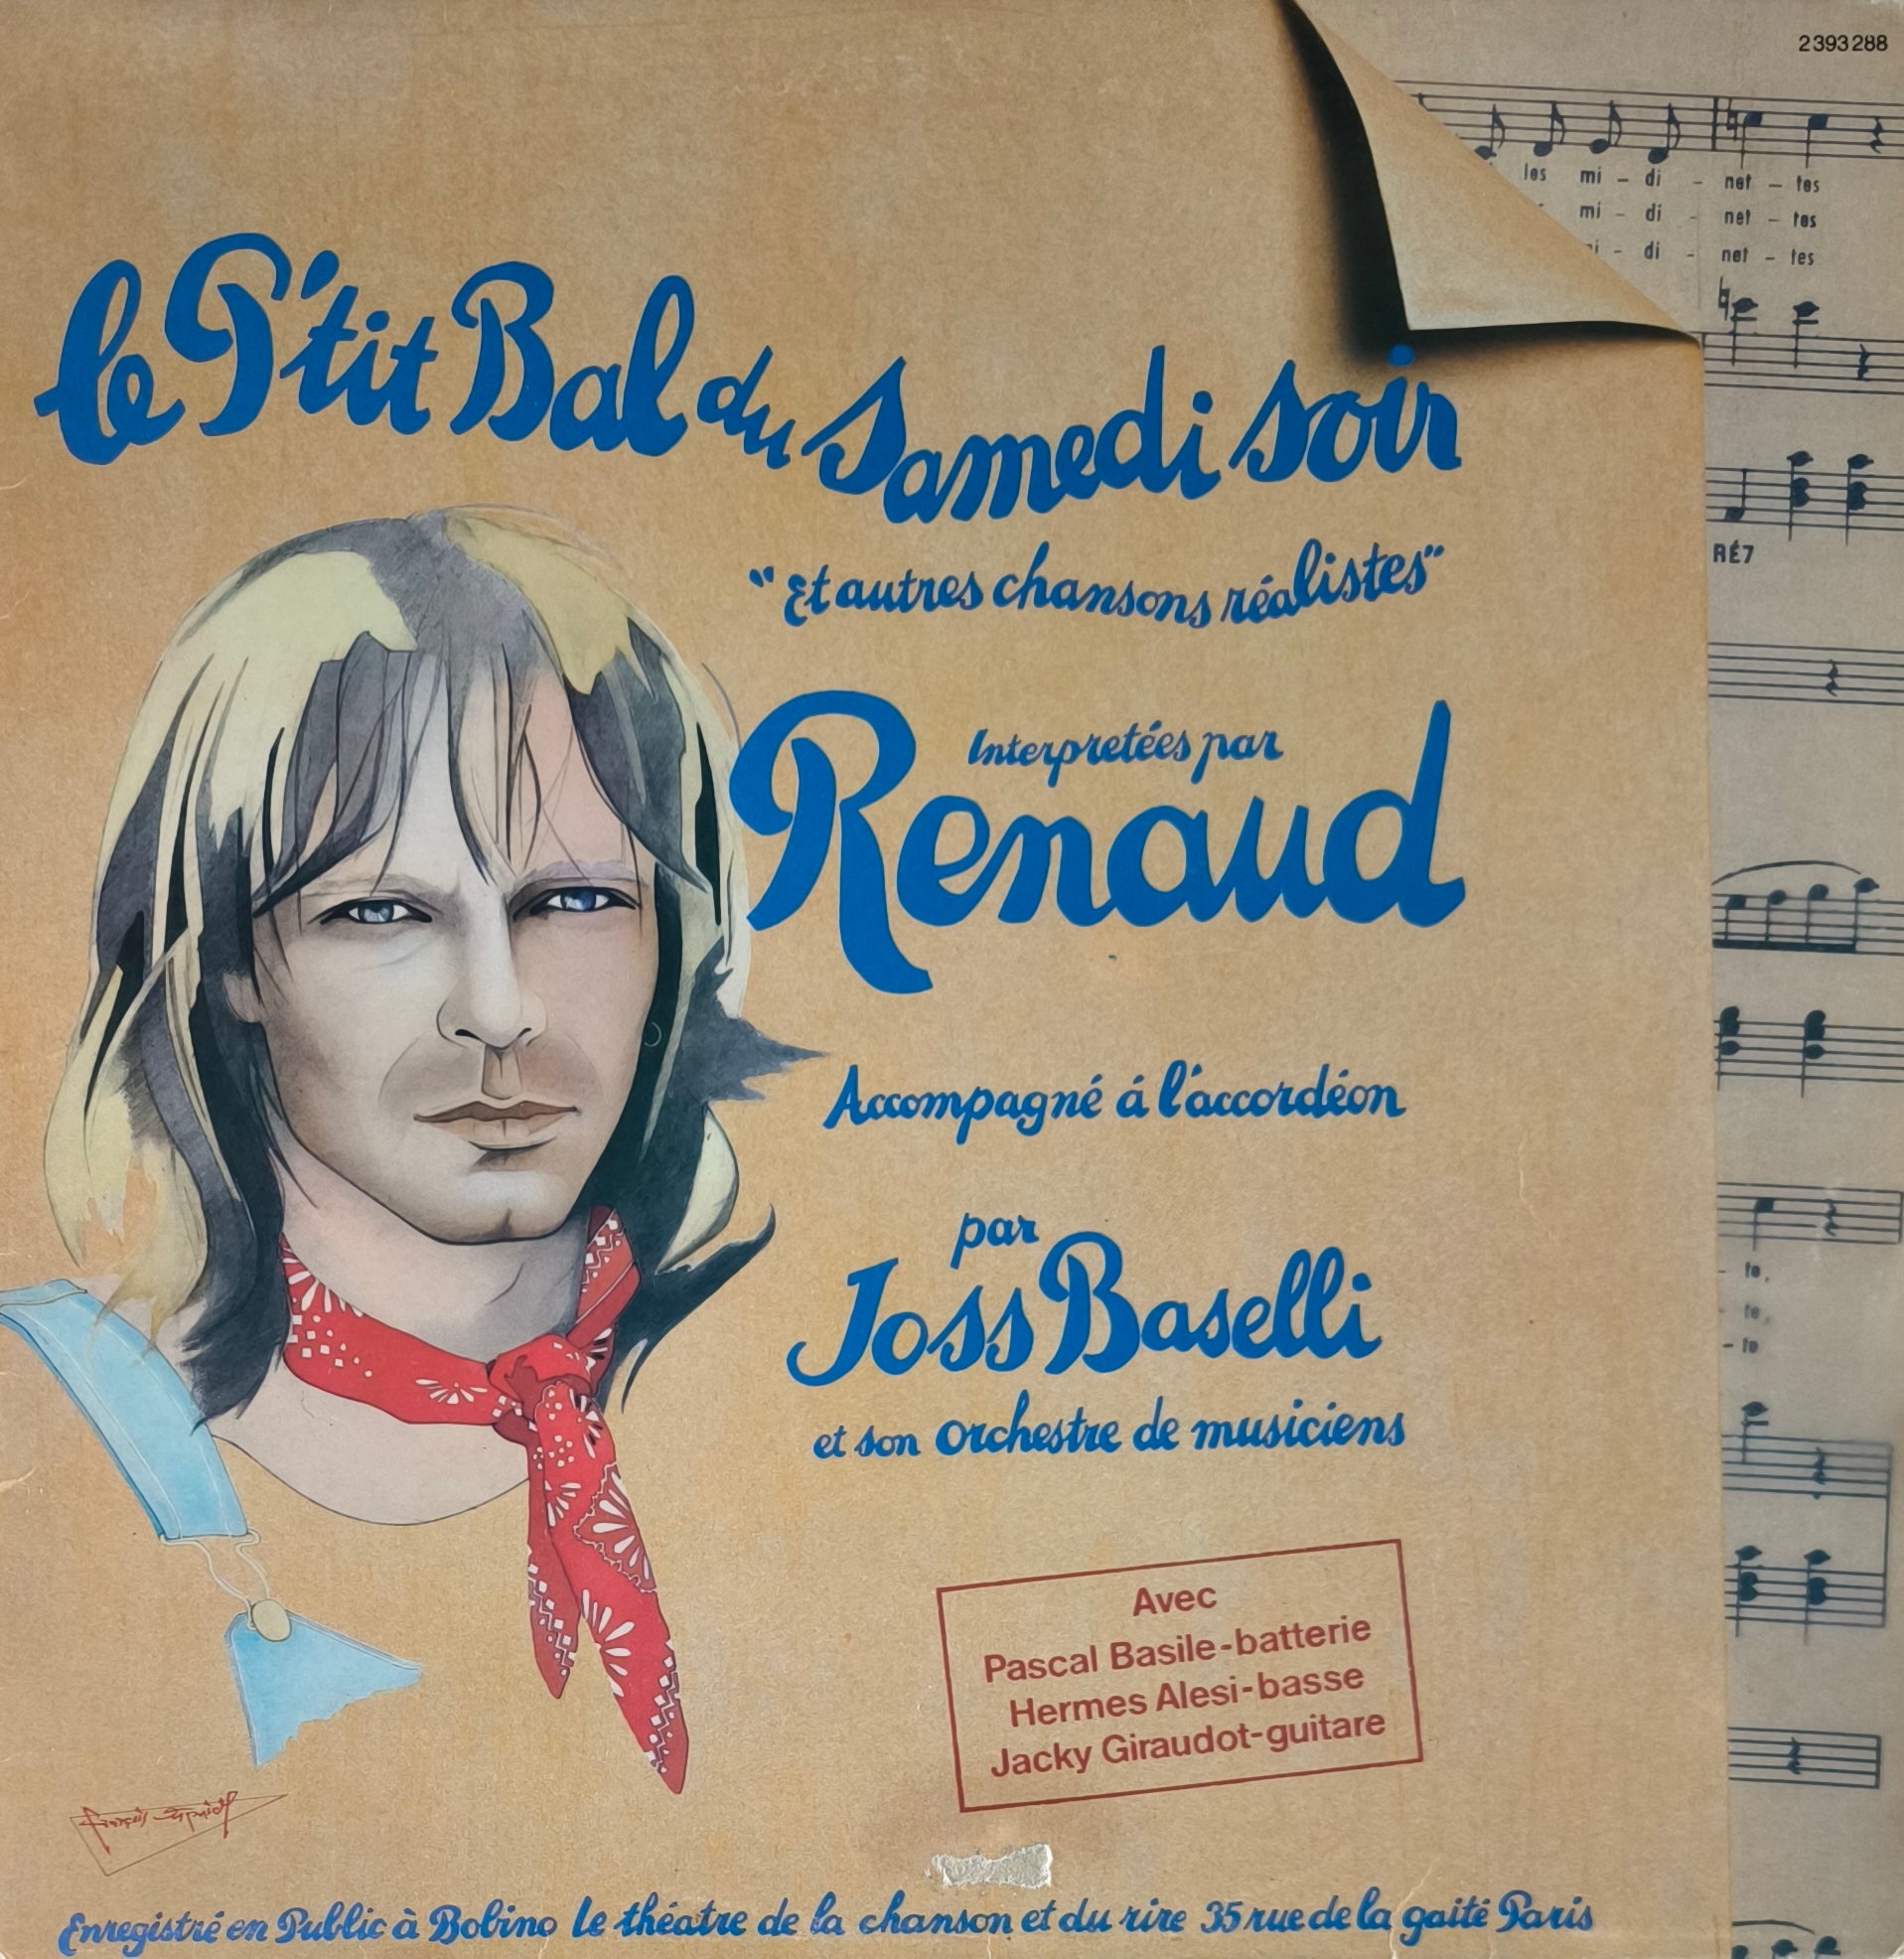 2393288
les mi - di - net - tes
mi - di - net - tes
- di - net - tes
le P'tit Bal du Samedi soir
"Et autres chansons réalistes"
RÉ7
Interpretées par
Renaud
Accompagné á l'accordéon
par
Joss Baselli
et son orchestre de musiciens
- te,
- te,
- te
Avec
Pascal Basile-batterie
Hermes Alesi-basse
Jacky Giraudot-guitare
Enregistré en Public à Bobino Le théatre de la chanson et du rire 35 rue de la gaité Paris